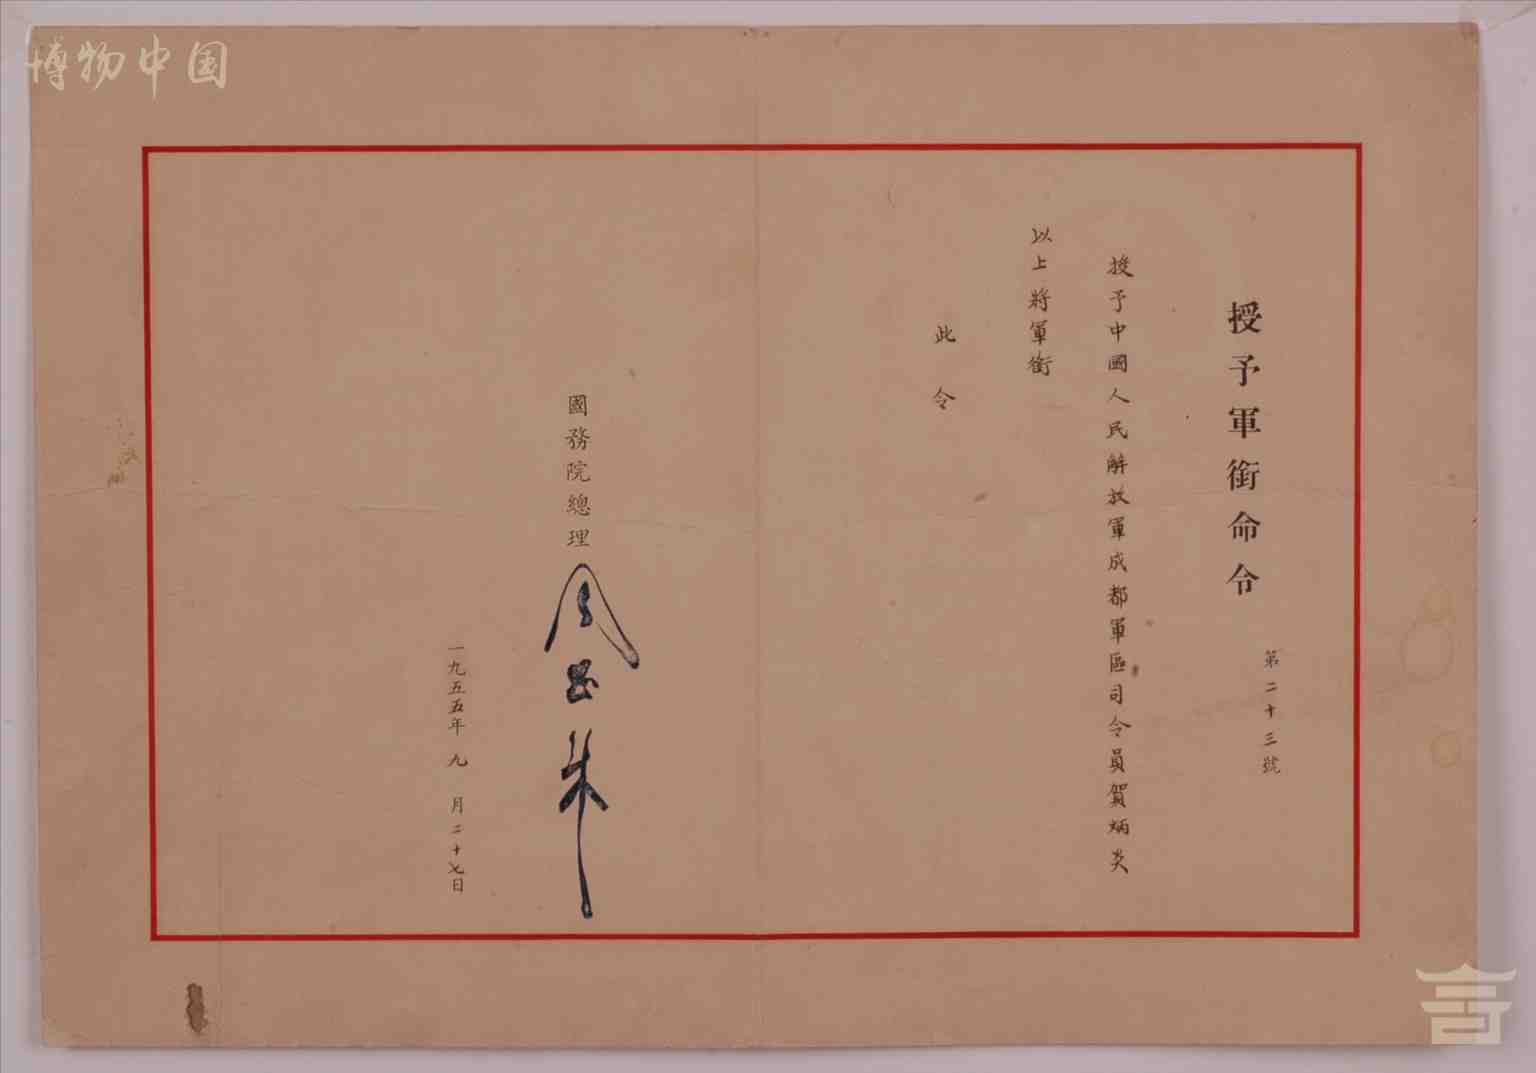 博物中国
授予軍銜命令
第二十三號
授予中國人民解放軍成都軍區司令員賀炳炎
以上將軍銜
此令
國務院總理
周恩来
一九五五年九月二十七日